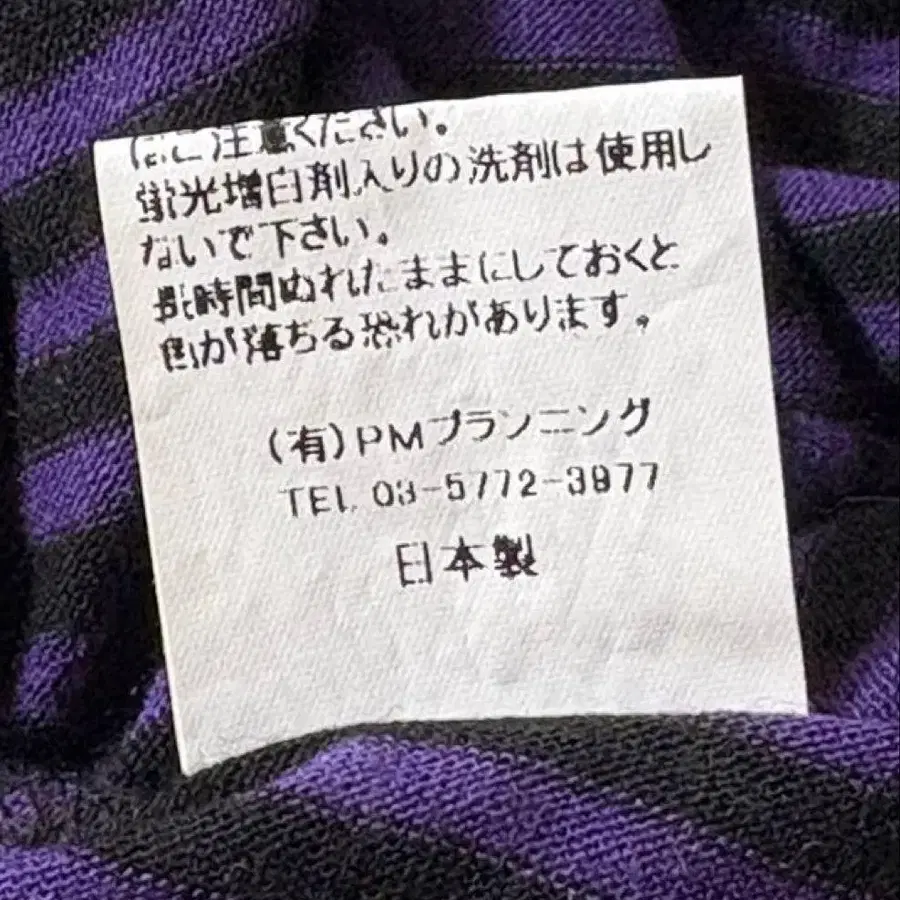 はご注意ください。
蛍光増白剤入りの洗剤は使用し
ないで下さい。
長時間ぬれたままにしておくと
色が落ちる恐れがあります。
(有)PMプランニング
TEL. 03-5772-3977
日本製